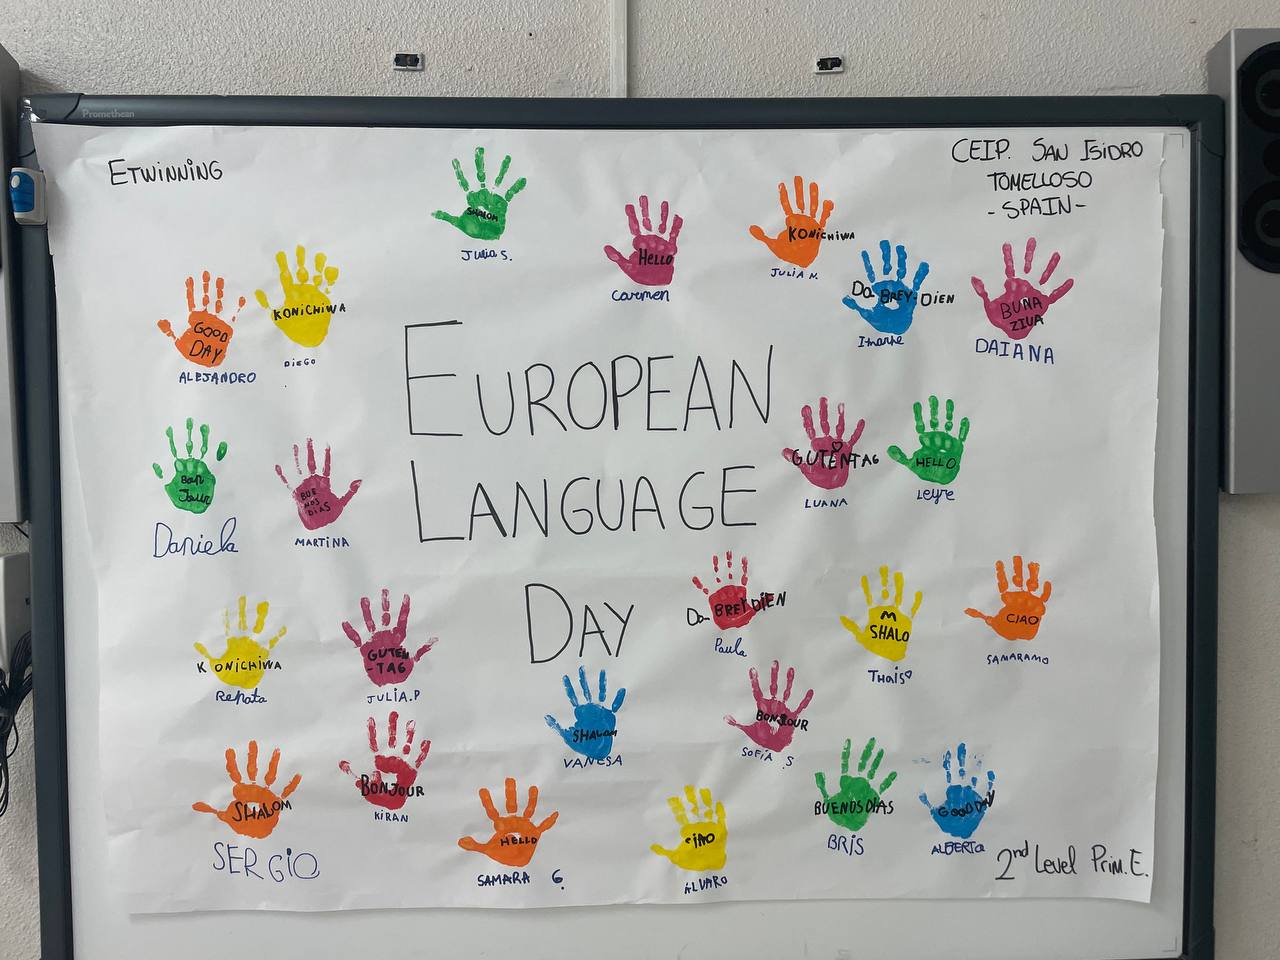 Promethean
ETWINNING
CEIP. SAN ISIDRO
TOMELLOSO
- SPAIN -
SHALOM
Julia S.
HELLO
Carmen
KONICHIWA
JULIA M.
DO BREY-DIEN
BUNA
ZIUA
DAIANA
GOOD
DAY
ALEJANDRO
KONICHIWA
DIEGO
EUROPEAN
LANGUAGE
DAY
BON
JOUR
Daniela
BUE
NOS
DIAS
MARTINA
GUTENTAG
LUANA
HELLO
Leyre
KONICHIWA
Renata
GUTEN
-TAG
JULIA.P
DO-BREYDIEN
Paula
M
SHALO
THAIS
CIAO
SAMARAMO
SHALOM
VANESA
BONJOUR
SOFÍA S
SHALOM
SERGIO
BONJOUR
KIRAN
HELLO
SAMARA G.
CIAO
ÁLVARO
BUENOS DIAS
BRIS
GOOD DAY
ALBERTO
2nd Level Prim. E.